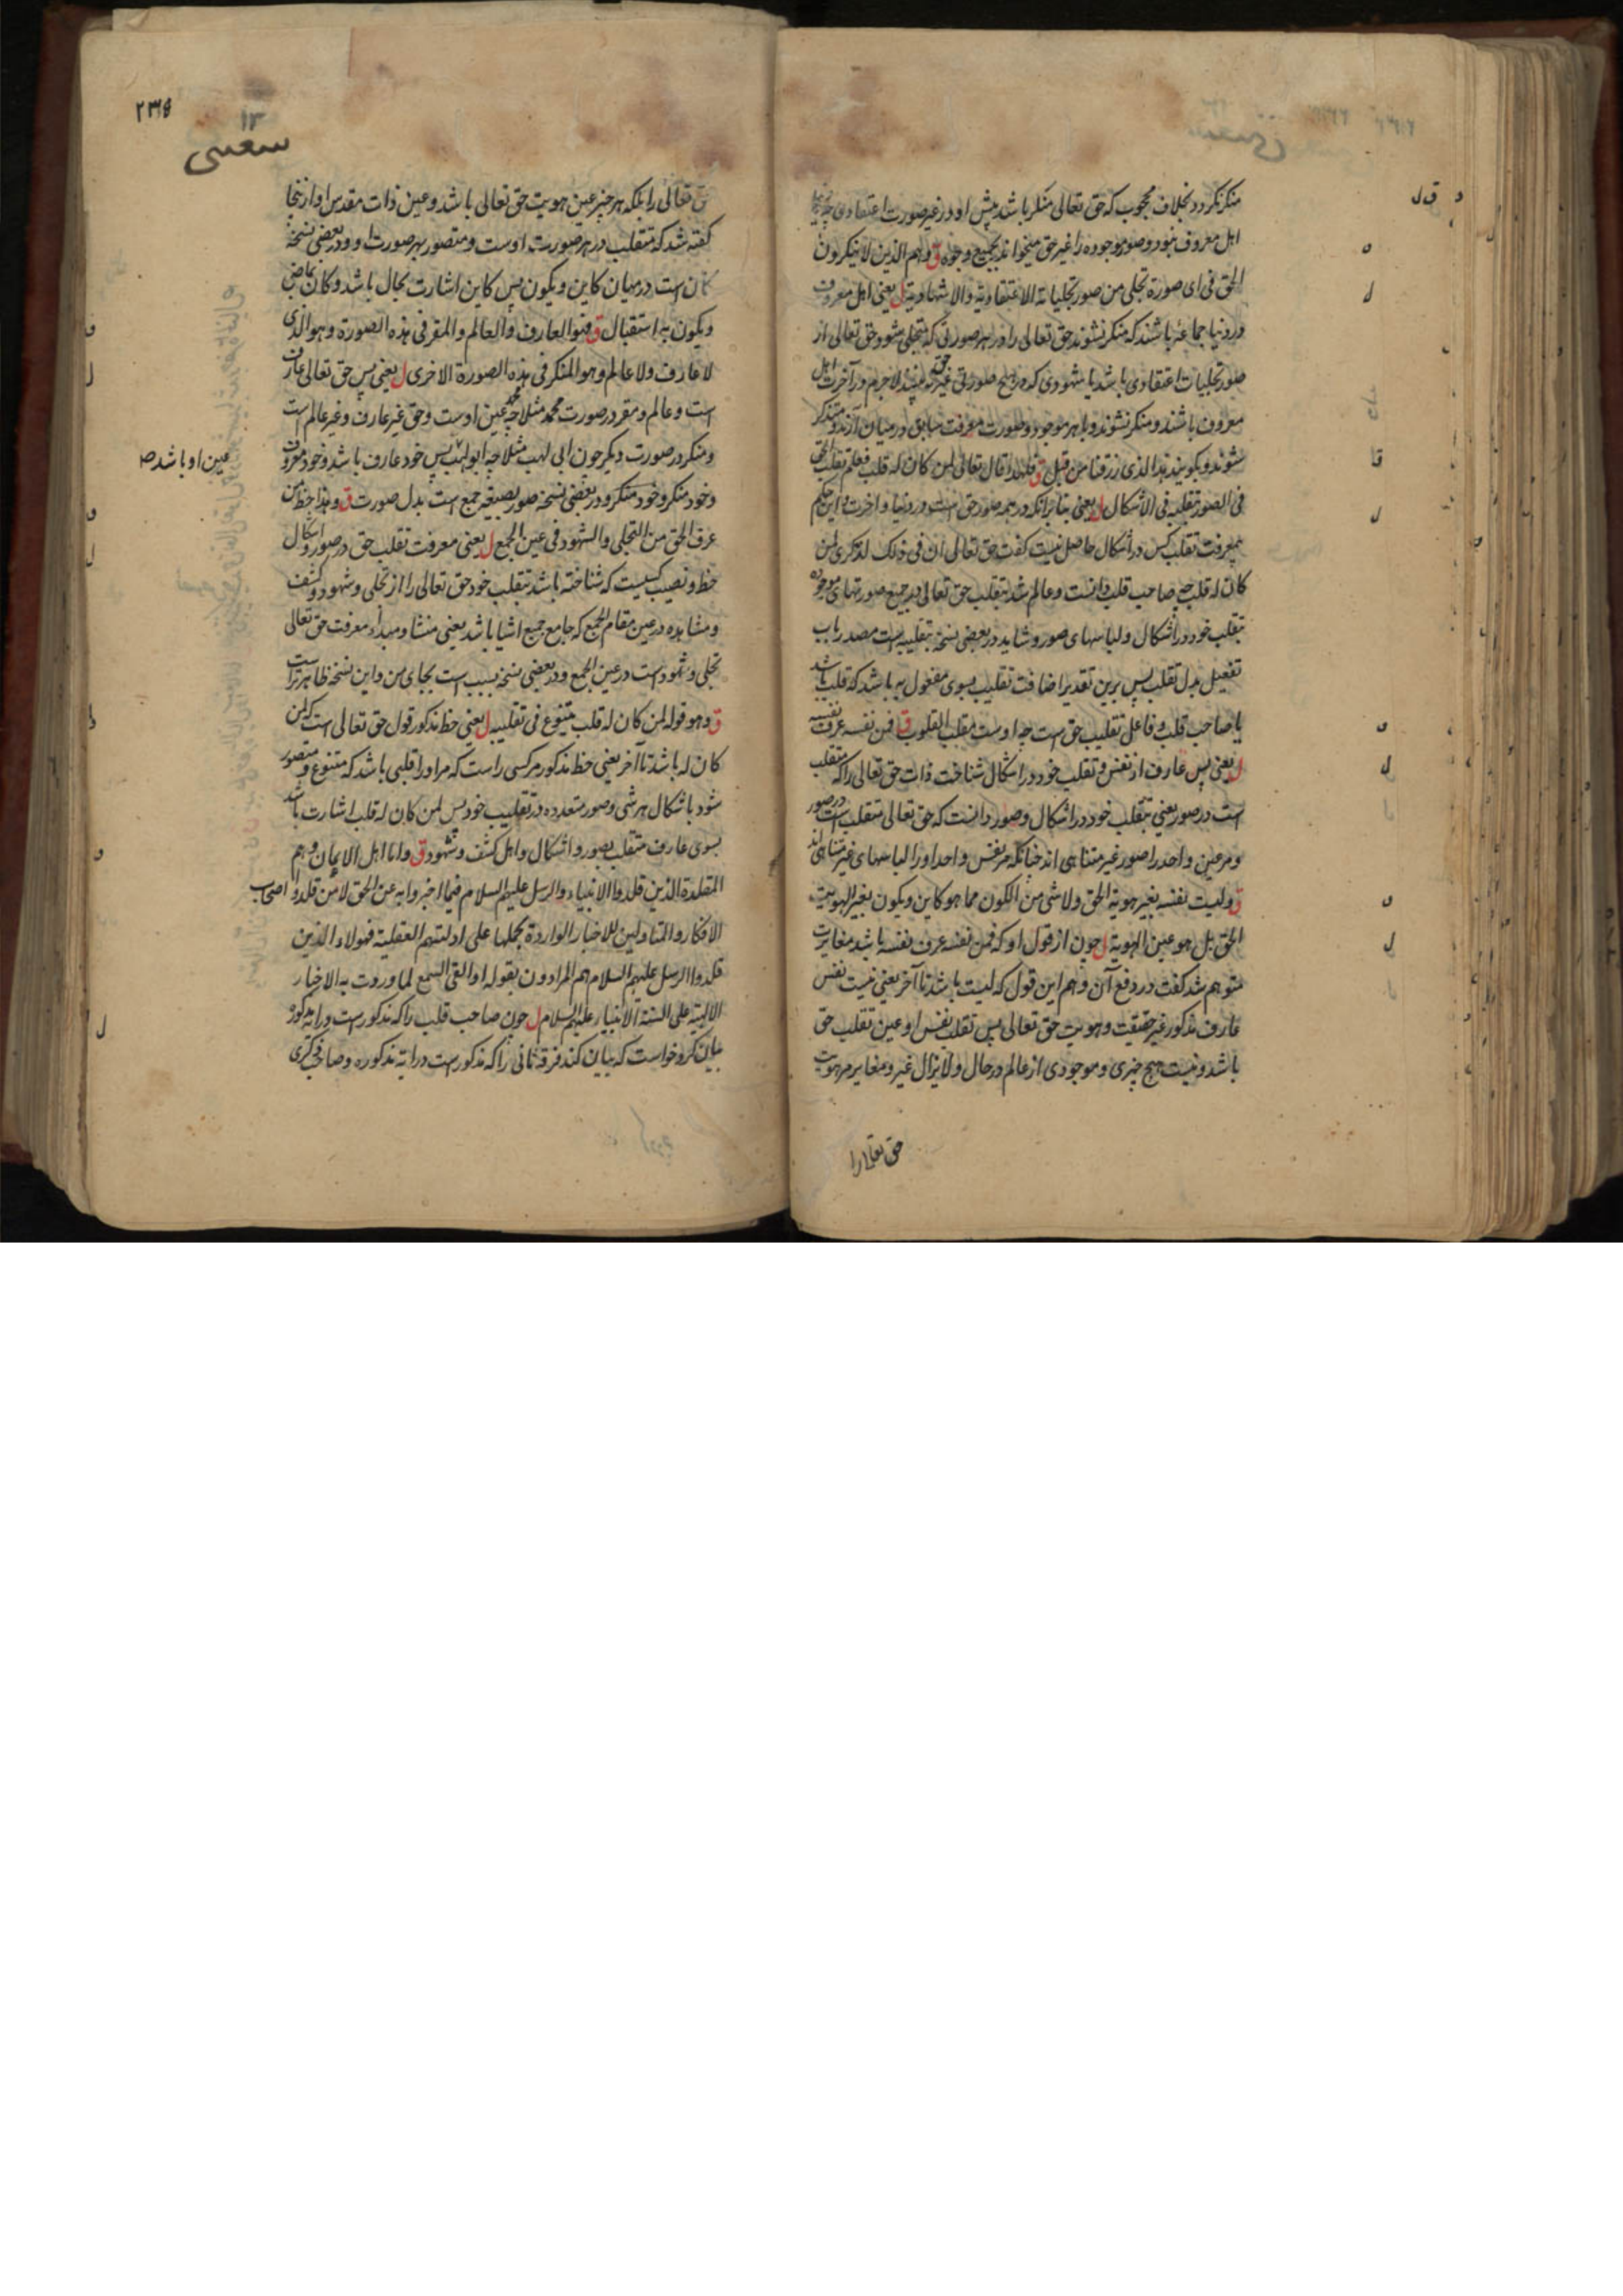 منکر نکردد بخلاف محجوب که حق تعالی منکر باشد پیش او در غیر صورت اعتقادی
اهل معروف نبود وصور موجوده را غیر حق میخواند بجمیع وجوه ق وهم الذین لا ینکرون
الحق فی ای صورة تجلی من صور تجلیاته الاعتقادیة والاشهادیة ل یعنی اهل معروف
در دنیا جماعه باشند که منکر نشوند حق تعالی را در هر صورتی که متجلی شود حق تعالی از
صور تجلیات اعتقادی باشد یا شهودی که در هیچ صورتی غیر حق نه بینند لاجرم در آخرت اهل
معروف باشند و منکر نشوند و بهر موجود و صورت معرفت سابق در میان آرند و متذکر
شوند و بکویند هذا الذی رزقنا من قبل ق فلهذا قال تعالی لمن کان له قلب فعلم تقلب الحق
فی الصور بتقلیبه فی الاشکال ل یعنی بنا برآنکه در همه صور حق است در دنیا و آخرت و این حکم
بمعرفت تقلب کس در اشکال حاصل نیست کفت حق تعالی ان فی ذلک لذکری لمن
کان له قلب چه صاحب قلب دانست و عالم شد بتقلب حق تعالی در جمیع صورتهای موجوده
بتقلب خود در اشکال و لباسهای صور و شاید در بعضی نسخه بتقلیبه است مصدر باب
تفعیل بدل تقلب پس برین تقدیر اضافت تقلیب بسوی مفعول به باشد که قلب باشد
یا صاحب قلب و فاعل تقلیب حق است چه اوست مقلب القلوب ق فمن نفسه عرف نفسه
ل یعنی پس عارف از نفس و تقلب خود در اشکال شناخت ذات حق تعالی را که متقلب
است در صور یعنی بتقلب خود در اشکال و صور دانست که حق تعالی متقلب است در صور
و مر عین واحد را صور غیر متناهی اند چنانکه مر نفس واحد او را لباسهای غیر متناهی اند
ق ولیست نفسه بغیر هویة الحق ولا شی من الکون مما هو کاین ویکون بغیر لهویة
الحق بل هو عین الهویة ل چون از قول او که فمن نفسه عرف نفسه باشد مغایرت
متوهم شد کفت در دفع آن وهم این قول که لیست باشد تا آخر یعنی نیست نفس
عارف مذکور غیر حقیقت و هویت حق تعالی پس تقلب نفس او عین تقلب حق
باشد و نیست هیچ چیزی و موجودی از عالم در حال و لایزال غیر و مغایر مر هویت
حق تعالی را
۲۳۵
۱۲
سعسی
حق تعالی را بلکه هر چیز عین هویت حق تعالی باشد و عین ذات مقدس او ازینجا
کفته شد که متقلب در هر صورت اوست و متصور بهر صورت او و در بعضی نسخه
کان است در میان کاین و یکون پس کاین اشارت بحال باشد و کان بماضی
و یکون به استقبال ق فهو العارف والعالم والمقر فی هذه الصورة وهو الذی
لا عارف ولا عالم وهو المنکر فی هذه الصورة الاخری ل یعنی پس حق تعالی عارف
است و عالم و مقر در صورت محمد مثلا چه محمد عین اوست و حق غیر عارف و غیر عالم است
و منکر در صورت دیگر چون ابی لهب مثلا چه ابو لهب پس خود عارف باشد و خود معروف
عین او باشد صح
و خود منکر و خود منکر و در بعضی نسخه صور بصیغه جمع است بدل صورت ق وهذا حظ من
عرف الحق من التجلی والشهود فی عین الجمع ل یعنی معرفت تقلب حق در صور و اشکال
حظ و نصیب کسیست که شناخته باشد بتقلب خود حق تعالی را از تجلی و شهود و کشف
و مشاهده در عین مقام الجمع که جامع جمیع اشیا باشد یعنی منشا و مبداء معرفت حق تعالی
تجلی و شهود است در عین الجمع و در بعضی نسخه بسبب است بجای من و این نسخه ظاهرتر است
ق وهو قوله لمن کان له قلب یتنوع فی تقلیبه ل یعنی حظ مذکور قول حق تعالی است که لمن
کان له باشد تا آخر یعنی حظ مذکور مر کسی راست که مر او را قلبی باشد که متنوع و متصور
شود باشکال هر شی و صور متعدده در تقلیب خود پس لمن کان له قلب اشارت باشد
بسوی عارف متقلب بصور و اشکال و اهل کشف و شهود ق واما اهل الایمان وهم
المقلدة الذین قلدوا الانبیاء والرسل علیهم السلام فیما اخبروا به عن الحق لا من قلدوا اصحاب
الافکار والمتاولین للاخبار الواردة بحملها علی ادلتهم العقلیة فهولاء الذین
قلدوا الرسل علیهم السلام هم المرادون بقوله او القی السمع لما وردت به الاخبار
الالهیة علی السنة الانبیاء علیهم السلام ل چون صاحب قلب را که مذکور است در ایه مذکوره
بیان کرد خواست که بیان کند فرقه ثانی را که مذکور است در ایه مذکوره